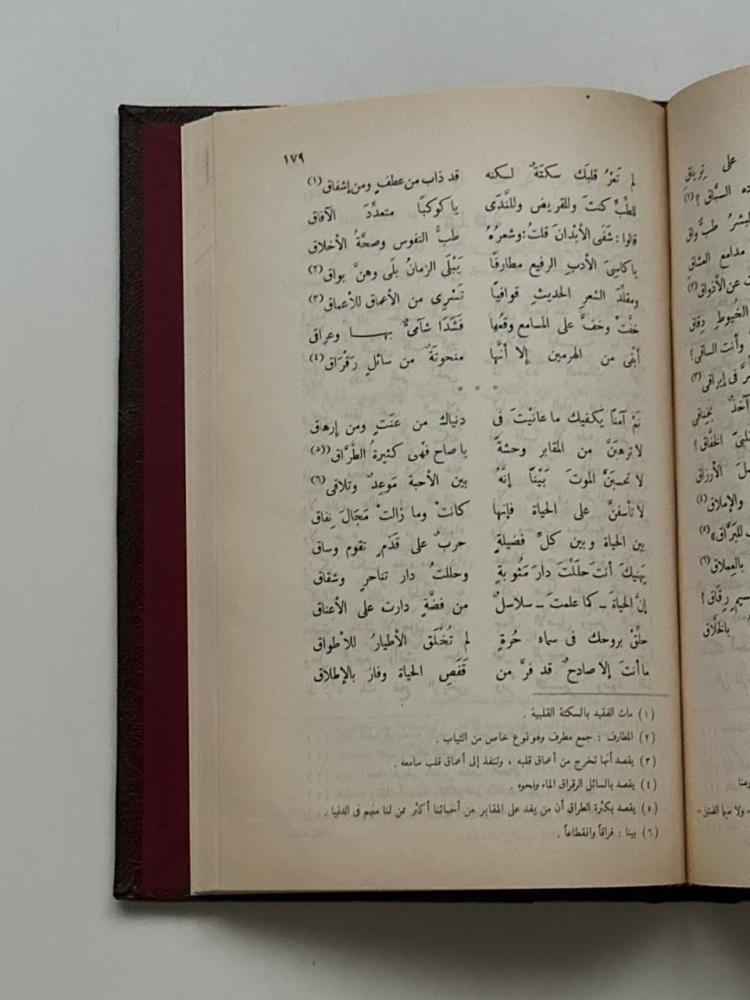 ١٧٩
لم تَعْرُ قلبَك سكتَةٌ لكنه قد ذاب من عطفٍ ومن إشفاق(١)
للطِّبِّ كنتَ وللقريض وللنَّدَى يا كوكبًا متعدِّدَ الآفاق
قالوا : شَفَى الأبْدانَ قلتُ : وشعرُهُ طبُّ النفوس وصحَّةُ الأخلاق
يا كاسىَ الأدبِ الرفيع مطارفًا يَبْلَى الزمانُ بلًى وهنَّ بواق(٢)
ومقلِّدَ الشعرِ الحديثِ قوافيًا تَسْرِى من الأعماق للأعماق(٣)
خفَّتْ وخفَّ على المسامع وقعُها فَشَدَا شآمىٌّ بهــا وعراق
أبقى من الهرمين إلا أنَّها منحوتةٌ من سائلٍ رَقْرَاق(٤)
* * *
نَمْ آمنًا يكفيك ما عانيْتَ فى دنياك من عَنَتٍ ومن إرهاق
لا ترهبَنَّ من المقابر وحشةً يا صاح فهْى كثيرةُ الطُّرَّاق(٥)
لا تحسبَنَّ الموتَ بَيْنًا إنَّهُ بين الأحبة مَوعِدٌ وتلاقى(٦)
لا تأسفنَّ على الحياة فإنها كانتْ وما زالتْ مَجَالَ نِفاق
بين الحياة وبين كلِّ فضيلةٍ حربٌ على قَدَمٍ تقوم وساق
يَهنيكَ أنتَ حلَلْتَ دارَ مَثُوبةٍ وحللتُ دار تناحرٍ وشقاق
إنَّ الحياةَ ــ كما علمتَ ــ سلاسلٌ من فضَّةٍ دارت على الأعناق
حلِّقْ بروحك فى سماء حُرةٍ لم تُخْلَق الأطيارُ للأطواق
ما أنتَ إلا صادحٌ قد فرَّ من قَفَصِ الحياة وفاز بالإطلاق
(١) مات الفقيد بالسكتة القلبية .
(٢) المطارف : جمع مطرف وهو نوع خاص من الثياب .
(٣) يقصد أنها تخرج من أعماق قلبه ، وتنفذ إلى أعماق قلب سامعه .
(٤) يقصد بالسائل الرقراق الماء ونحوه .
(٥) يقصد بكثرة الطراق أن من يفد على المقابر من أحبائنا أكثر ممن لنا منهم فى الدنيا .
(٦) بينا : فراقاً وانقطاعاً .